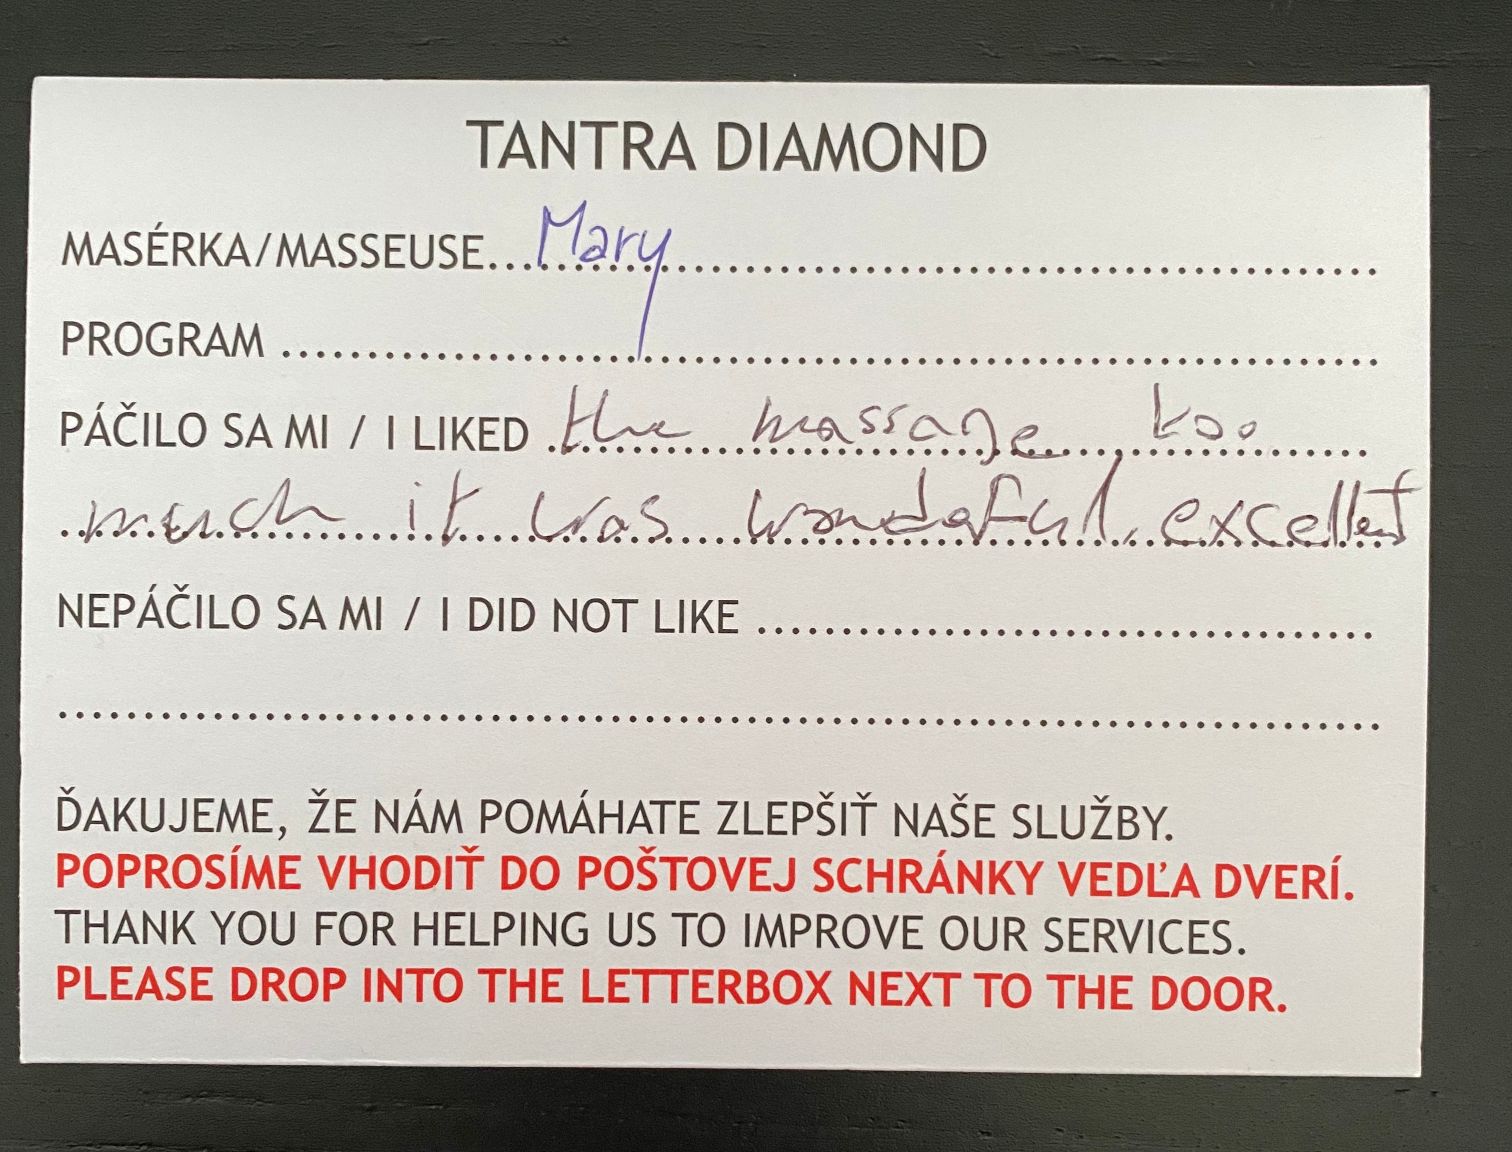 TANTRA DIAMOND
MASÉRKA/MASSEUSE...Mary..............................
PROGRAM ..............................
PÁČILO SA MI / I LIKED .the massage too
much it was wonderful, excellent
NEPÁČILO SA MI / I DID NOT LIKE ..............................
..............................
ĎAKUJEME, ŽE NÁM POMÁHATE ZLEPŠIŤ NAŠE SLUŽBY.
POPROSÍME VHODIŤ DO POŠTOVEJ SCHRÁNKY VEDĽA DVERÍ.
THANK YOU FOR HELPING US TO IMPROVE OUR SERVICES.
PLEASE DROP INTO THE LETTERBOX NEXT TO THE DOOR.